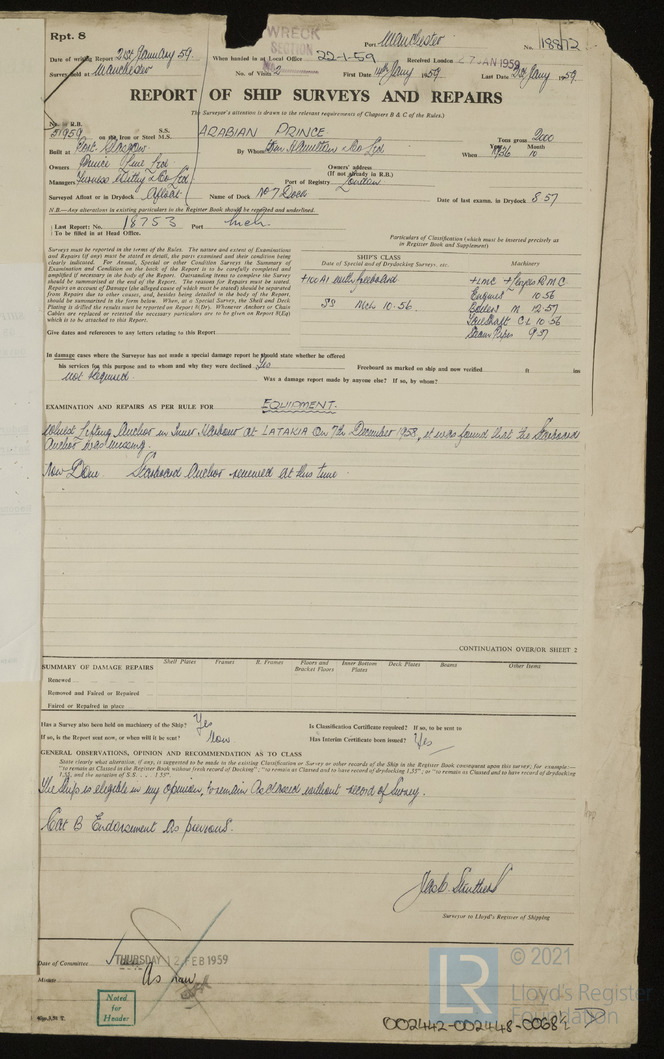 Rpt. 8
WRECK SECTION
Port Manchester
No. 18872
Date of writing Report 21st January 59. When handed in at Local Office 22-1-59 Received London 27 JAN 1959
Survey held at Manchester No. of Visits 2 First Date 14th Jany 1959 Last Date 21st Jany 1959.
REPORT OF SHIP SURVEYS AND REPAIRS
(The Surveyor's attention is drawn to the relevant requirements of Chapters B & C of the Rules.)
No. in R.B. 51959 on the Iron or Steel S.S. M.S. ARABIAN PRINCE Tons gross 2000
Built at Port Glasgow By Whom Hamilton & Co Ltd When Year 1936 Month 10
Owners Prince Line Ltd Owners' address
(If not already in R.B.)
Managers Furness Withy & Co Ltd Port of Registry London
Surveyed Afloat or in Drydock Afloat Name of Dock No 7 Dock Date of last examn. in Drydock 8 57
N.B.—Any alterations in existing particulars in the Register Book should be reported and underlined.
Last Report: No. 18753 Port Mch.
To be filled in at Head Office.
Particulars of Classification (which must be inserted precisely as in Register Book and Supplement)
Surveys must be reported in the terms of the Rules. The nature and extent of Examinations
and Repairs (if any) must be stated in detail, the parts examined and their condition being
clearly indicated. For Annual, Special or other Condition Surveys the Summary of
Examination and Condition on the back of the Report is to be carefully completed and
amplified if necessary in the body of the Report. Outstanding items to complete the Survey
should be summarised at the end of the Report. The reasons for Repairs must be stated.
Repairs on account of Damage (the alleged cause of which must be stated) should be separated
from Repairs due to other causes, and, besides being detailed in the body of the Report,
should be summarised in the form below. When, at a Special Survey, the Shell and Deck
Plating is drilled the results must be reported on Report 8(Dr). Whenever Anchors or Chain
Cables are replaced or retested the necessary particulars are to be given on Report 8(Eq)
which is to be attached to this Report.
SHIP'S CLASS
Date of Special and of Drydocking Surveys, etc. Machinery
+100A1 with freeboard +LMC
SS Mch 10.56 Engines 10.56
Boilers M 12.57
Tailshaft CL 10.56
Steam Pipes
Give dates and references to any letters relating to this Report
In damage cases where the Surveyor has not made a special damage report he should state whether he offered
his services for this purpose and to whom and why they were declined Yes
not required. Freeboard as marked on ship and now verified ft ins
Was a damage report made by anyone else? If so, by whom?
EXAMINATION AND REPAIRS AS PER RULE FOR EQUIPMENT.
Whilst lifting Anchor in Inner Harbour at LATAKIA on 7th December 1958, it was found that the Starboard
Anchor was missing.
Now Done. Starboard Anchor renewed at this time.
CONTINUATION OVER/ON SHEET 2
SUMMARY OF DAMAGE REPAIRS Shell Plates Frames R. Frames Floors and Bracket Floors Inner Bottom Plates Deck Plates Beams Other Items
Renewed
Removed and Faired or Repaired
Faired or Repaired in place
Has a Survey also been held on machinery of the Ship? Yes Is Classification Certificate required? If so, to be sent to
If so, is the Report sent now, or when will it be sent? Now Has Interim Certificate been issued? Yes
GENERAL OBSERVATIONS, OPINION AND RECOMMENDATION AS TO CLASS
State clearly what alteration, if any, is suggested to be made to the existing Classification or Survey or other records of the Ship in the Register Book consequent upon this survey; for example:—
"to remain as Classed in the Register Book without fresh record of Docking"; "to remain as Classed and to have record of drydocking 1,55"; or "to remain as Classed and to have record of drydocking
1,55, and the notation of S.S. . . . 1.55".
The Ship is eligible in my opinion, to remain as classed without record of Survey.
Cert B Endorsement as previous.
Surveyor to Lloyd's Register of Shipping
Date of Committee THURSDAY 12 FEB 1959
Minute As now
Noted
for
Header
© 2021
LR
Lloyd's Register
Foundation
002442-002448-0068 1/2